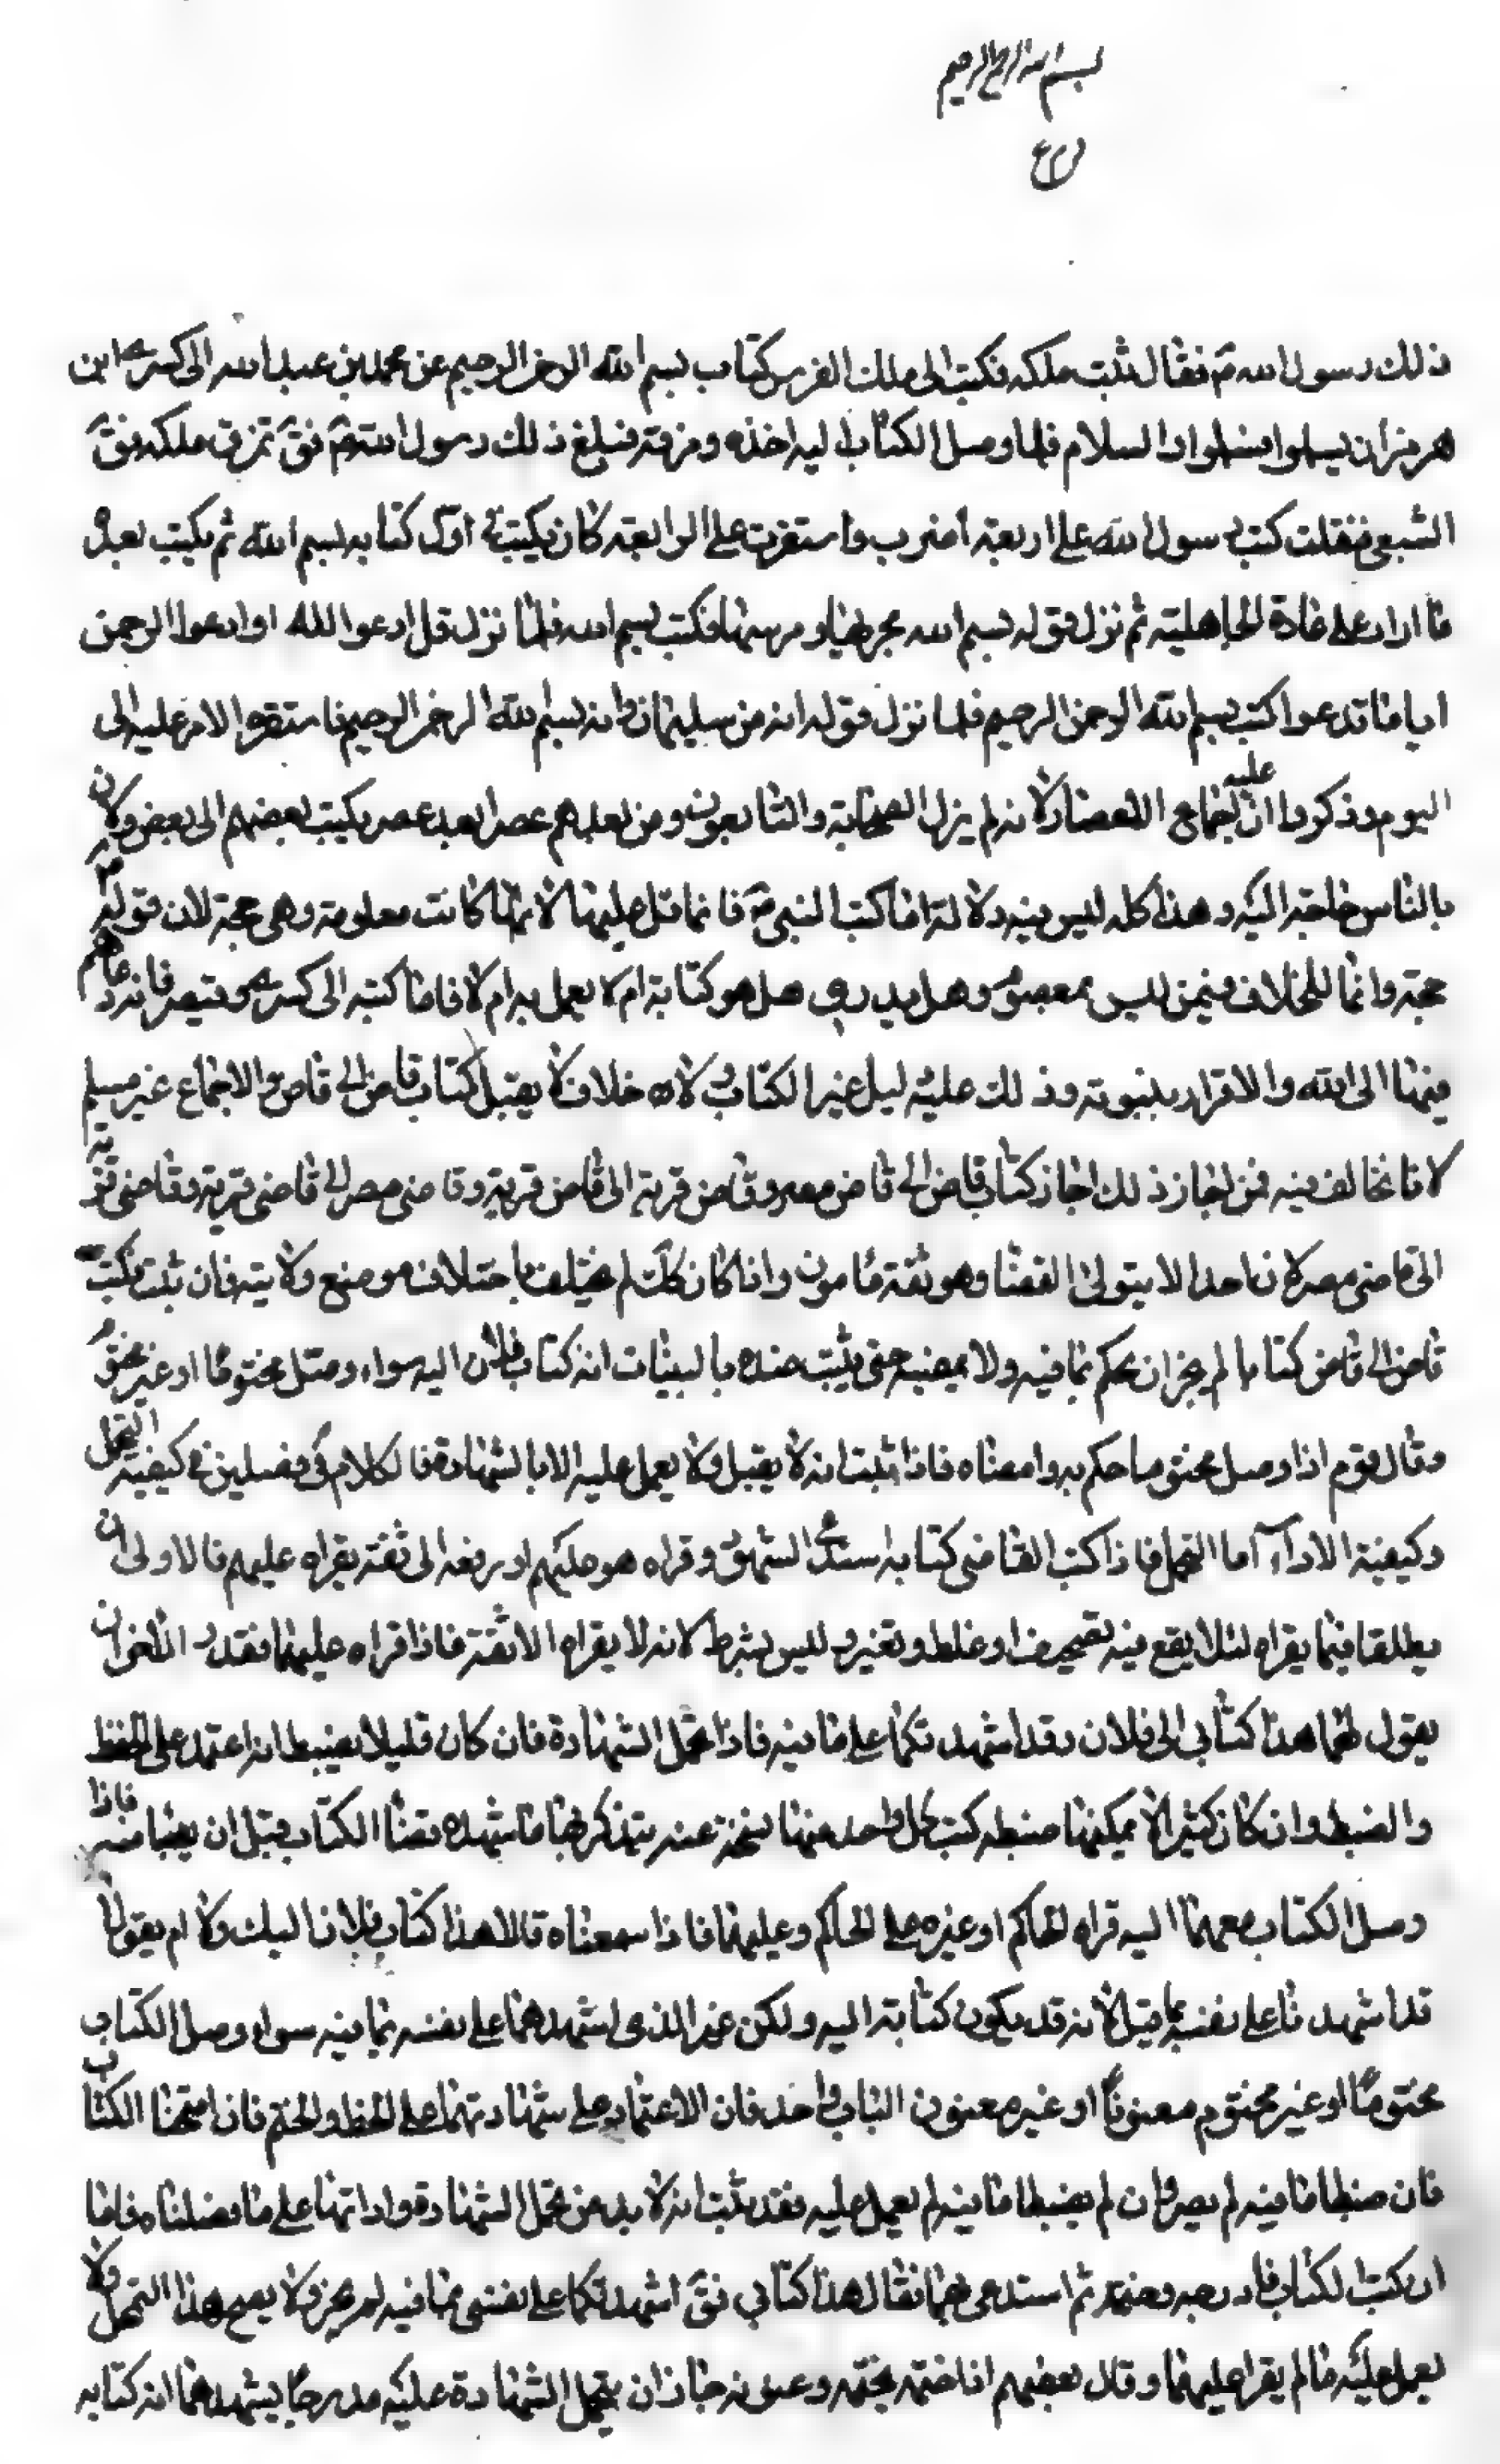 بسم الله الرحمن الرحيم
ذلك رسول الله ص فقال ثبت ملكه فكتب الى ملك الفرس كتاب بسم الله الرحمن الرحيم عن محمد بن عبد الله الى كسرى ابن
هرمز أن يسلموا والسلام فلما وصل الكتاب اليه اخذه ومزقه فبلغ ذلك رسول الله ص فق تمزق ملكه فق
الشعبي فنقلت كتب رسول الله على اربعة أضرب واستقرت على الرابعة كان يكتب في اول كتابه بسم الله ثم يكتب بعده
ما اراد على عادة الجاهلية ثم نزل قوله بسم الله مجريها ومرسيها فكتب بسم الله فلما نزل قل ادعوا الله او ادعوا الرحمن
ايا ما تدعوا كتب بسم الله الرحمن الرحيم فلما نزل قوله انه من سليمان وانه بسم الله الرحمن الرحيم فاستقر الامر عليه الى
اليوم وذكروا ان عليه اجماع الاعصار لانه لم يزل الصحابة والتابعون ومن بعدهم عصرا بعد عصر يكتب بعضهم الى بعض ولان
بالناس حاجة اليه وهذا كله ليس فيه دلالة اما كتب النبي ص فانما قبل عليها لانها كانت معلومة وهي حجة لان قوله
حجة وانما الخلاف فيمن ليس بمعصوم وهل يدرى هل هو كتابة ام لا يعمل به ام لا فاما كتبه الى كسرى وقيصر فانه دعاهم
فيها الى الله والاقرار بنبوته وذلك عليه دليل غير الكتاب لانه خلاف لا يقبل كتاب قاض الى قاض والاجماع غير مسلم
لانا نخالف فيه فمن اجاز ذلك اجاز كتاب قاض الى قاض مصر وقاض قرية الى قاض قرية وقاضي مصر الى قاضي قرية وقاضي قرية
الى قاضي مصر لان احدا لا يتولى القضا وهو ثقة مامون واذا كان كك لم يختلف باختلاف موضع ولايته فان ثبت فكتب
قاض الى قاض كتابا لم يجز ان يحكم بما فيه ولا يمضيه حتى يثبت عنده بالبينات انه كتاب فلان اليه سواء وصل مختوما او غير مختوم
وقال قوم اذا وصل مختوما حكم به وامضاه فاذا ثبت انه لا يقبل ولا يعمل عليه الا بالشهادة فالكلام في فصلين في كيفية التحمل
وكيفية الاداء اما التحمل فاذا كتب القاضي كتابه استدعى الشهود وقراه هو عليهم او دفعه الى ثقة يقراه عليهم فالاولى ان
يطلعا فيما يقراه لئلا يقع فيه تصحيف او غلط وتغير وليس بشرط لانه لا يقراه الا ثقة فاذا قراه عليهما فقد اجزأ ان
يقول لهما هذا كتابي الى فلان وقد اشهدتكما على ما فيه فاذا تحمل الشهادة فان كان قليلا يضبطانه اعتمد على الحفظ
والضبط وان كان كثيرا لا يمكنهما ضبطه كتب كل واحد منهما نسخة عنه يتذكر بها ما شهده وقبضا الكتاب قبل ان يغيبا فاذا
وصل الكتاب معهما اليه قراه الحاكم او غيره على الحاكم وعليهما فاذا سمعناه قالا هذا كتاب فلان اليك ولا ام يقولا
قد اشهدنا على نفسه بما فيه لانه قد يكون كتابة اليه ولكن غير الذي اشهدهما على نفسه بما فيه سواء وصل الكتاب
مختوما او غير مختوم معنونا او غير معنون الباب واحد فان الاعتماد على شهادتهما على الخط والختم فاذا امتحنا الكتاب
فان ضبطا ما فيه لم يضر وان لم يضبطا ما فيه لم يعمل عليه فقد ثبت انه لا بد من تحمل الشهادة واداتها على ما فصلناه فاما
ان كتب الكتاب فادرجه وختمه ثم استدعى بهما فقال هذا كتابي فق اشهدتكما على نفسي بما فيه لم يجز ولا يصح هذا التحمل ولا
يعمل عليه ما لم يقرا عليهما وقال بعضهم اذا ختمه بختمه وعنونه جاز ان يتحمل الشهادة عليه مدرجا يشهدهما انه كتابه